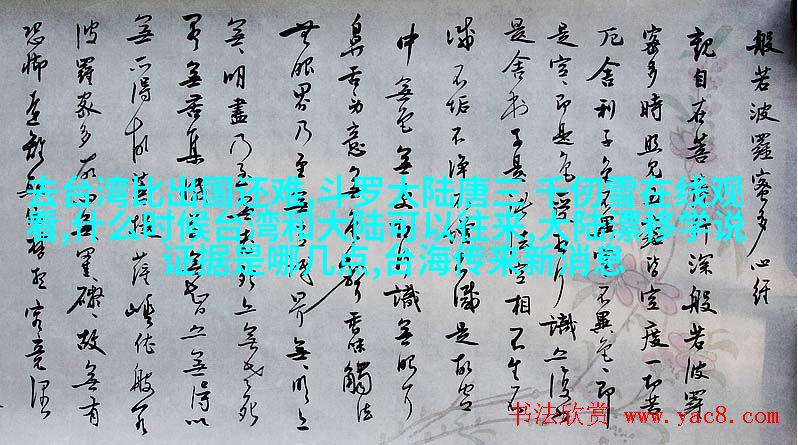 般若波羅蜜多心经
觀自在菩行深般若波羅
蜜多時照見皆空度一切苦
厄舍利子色不異空不異色色即
是空空即是色受行識亦復
是舍利子是諸法空相不生不
滅不垢不淨不減是故空
中無色無識無眼耳
鼻舌身意無色香味觸法
無眼界乃至無界無無明亦
無無明盡乃至無亦無老死
無苦集智亦無得以
無所得故菩提薩埵依般若
波羅蜜多故無罣礙故無有
恐怖遠想究竟涅
去台湾比出国还难,斗罗大陆唐三,千仞雪在线观
看,什么时候台湾和大陆可以往来,大陆漂移学说
证据是哪几点,台海传来新消息
书法欣赏 www.yac8.com